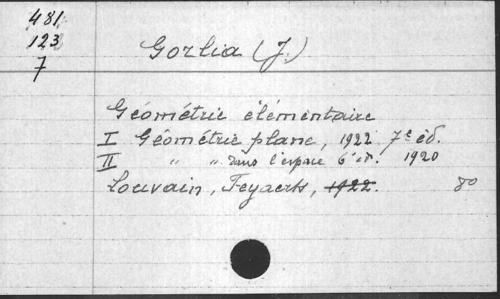 481
123
7
Gorlia (J.)
Géométrie élémentaire
I Géométrie plane, 1922 7e éd.
II " " dans l'espace 6e éd. 1920
Louvain, Feyaerts, 1922. 8o